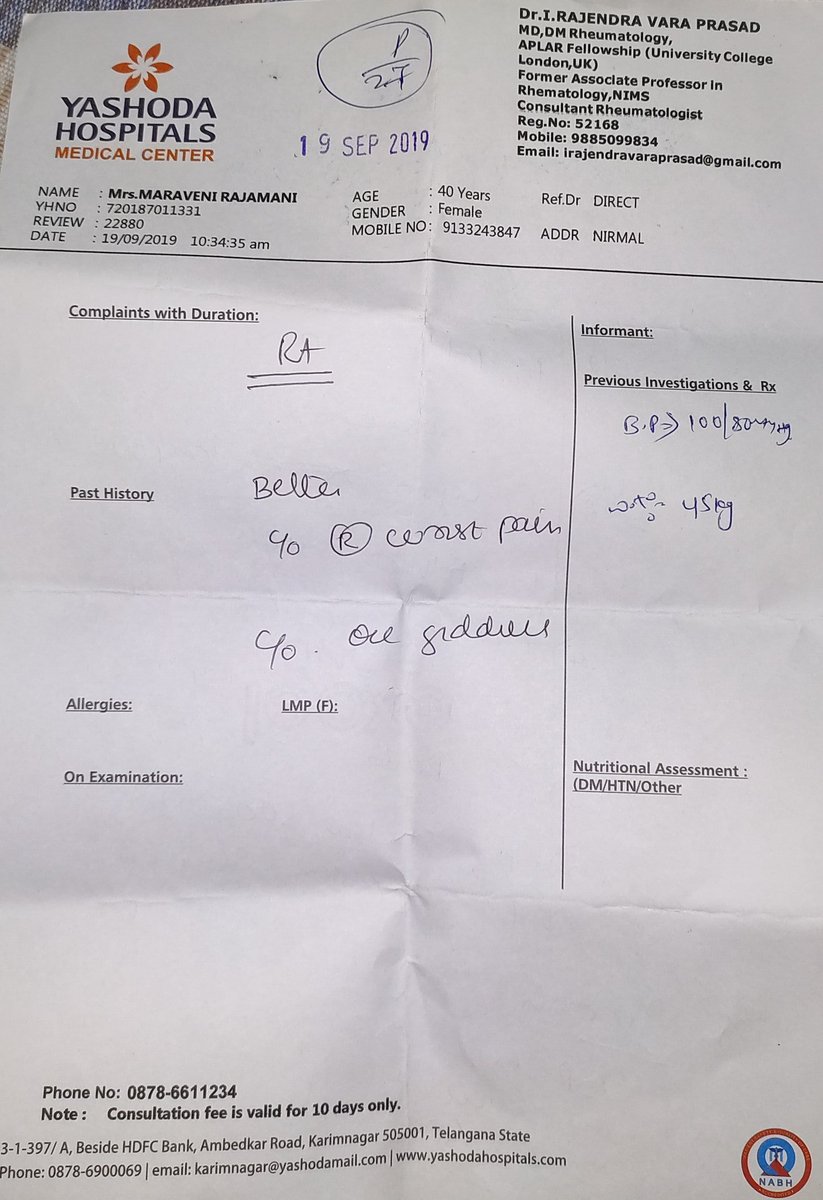 YASHODA
HOSPITALS
MEDICAL CENTER
P
27
19 SEP 2019
Dr.I.RAJENDRA VARA PRASAD
MD,DM Rheumatology,
APLAR Fellowship (University College
London,UK)
Former Associate Professor In
Rhematology,NIMS
Consultant Rheumatologist
Reg.No: 52168
Mobile: 9885099834
Email: irajendravaraprasad@gmail.com
NAME : Mrs.MARAVENI RAJAMANI
YHNO : 720187011331
REVIEW : 22880
DATE : 19/09/2019 10:34:35 am
AGE : 40 Years
GENDER : Female
MOBILE NO: 9133243847
Ref.Dr DIRECT
ADDR NIRMAL
Complaints with Duration:
RA
Past History
Better
c/o (R) wrist pain
c/o . occ giddiness
Allergies:
LMP (F):
On Examination:
Informant:
Previous Investigations & Rx
B.P⇒ 100/80mmHg
45kg
Nutritional Assessment :
(DM/HTN/Other
Phone No: 0878-6611234
Note : Consultation fee is valid for 10 days only.
3-1-397/ A, Beside HDFC Bank, Ambedkar Road, Karimnagar 505001, Telangana State
Phone: 0878-6900069 | email: karimnagar@yashodamail.com | www.yashodahospitals.com
NABH